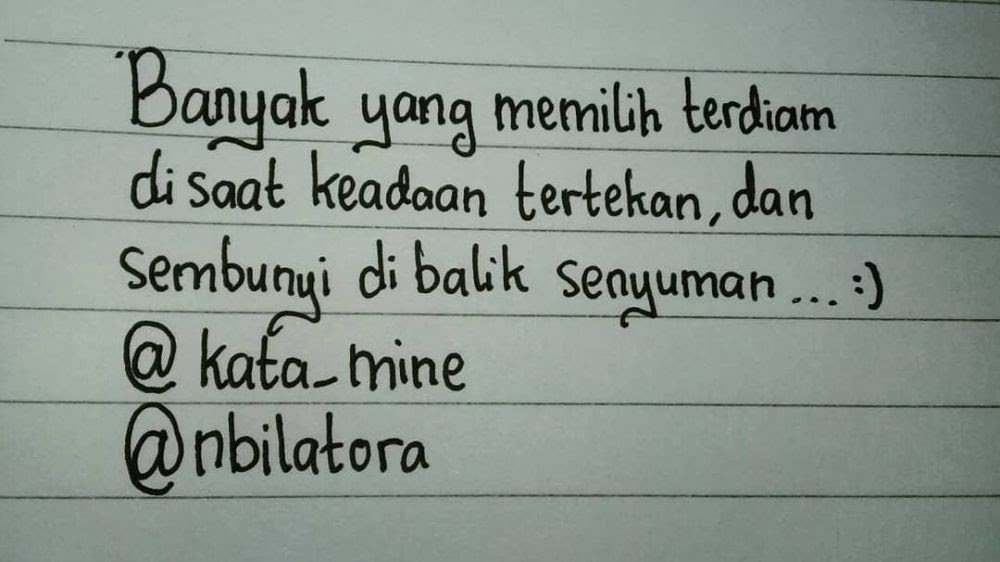 Banyak yang memilih terdiam
di saat keadaan tertekan, dan
sembunyi di balik senyuman ... :)
@ kata_mine
@nbilatora